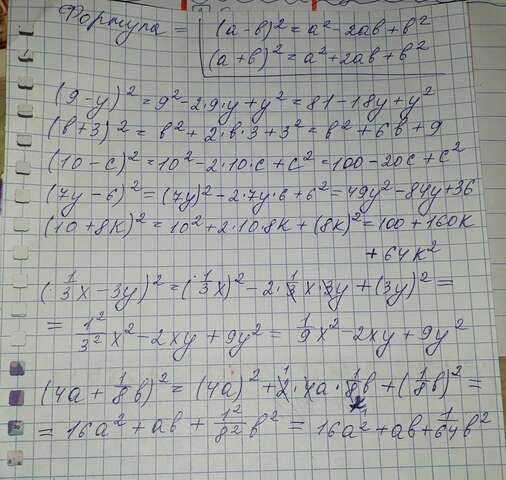 Формула = (a - b)² = a² - 2ab + b²
(a + b)² = a² + 2ab + b²
(9 - y)² = 9² - 2·9·y + y² = 81 - 18y + y²
(b + 3)² = b² + 2·b·3 + 3² = b² + 6b + 9
(10 - c)² = 10² - 2·10·c + c² = 100 - 20c + c²
(7y - 6)² = (7y)² - 2·7y·6 + 6² = 49y² - 84y + 36
(10 + 8k)² = 10² + 2·10·8k + (8k)² = 100 + 160k
+ 64k²
(1/3 x - 3y)² = (1/3 x)² - 2·1/3 x·3y + (3y)² =
= 1²/3² x² - 2xy + 9y² = 1/9 x² - 2xy + 9y²
(4a + 1/8 b)² = (4a)² + 2·4a·1/8 b + (1/8 b)² =
= 16a² + ab + 1²/8² b² = 16a² + ab + 1/64 b²